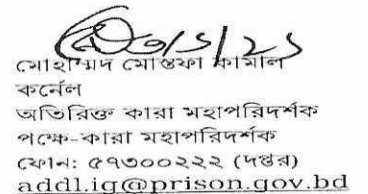 ৩/১/২১
মোহাম্মদ মোস্তফা কামাল
কর্নেল
অতিরিক্ত কারা মহাপরিদর্শক
পক্ষে-কারা মহাপরিদর্শক
ফোন: ৫৭৩০০২২২ (দপ্তর)
addl.ig@prison.gov.bd